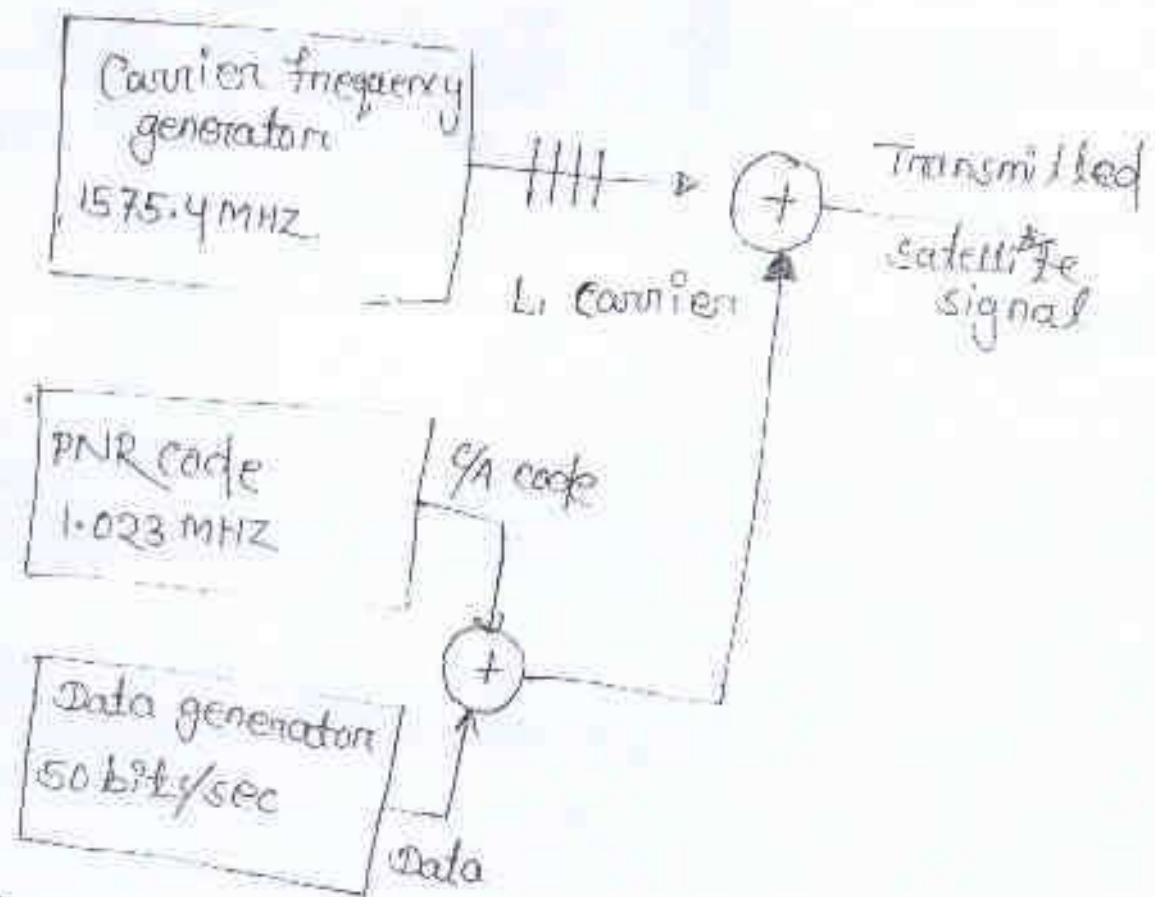 Carrier frequency
generator
1575.4 MHZ
L1 carrier
+
Transmitted
satellite
signal
PNR code
1.023 MHZ
C/A code
+
Data generator
50 bits/sec
Data